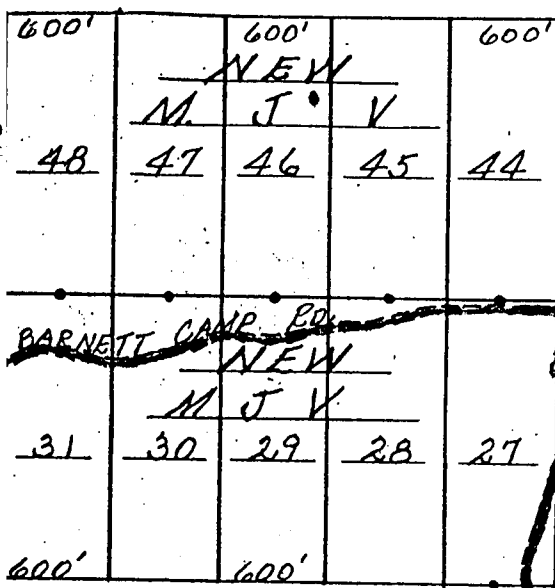 600' 600' 600'
NEW
M. J V
48 47 46 45 44
BARNETT CAMP RD.
NEW
M J V
31 30 29 28 27
600' 600'